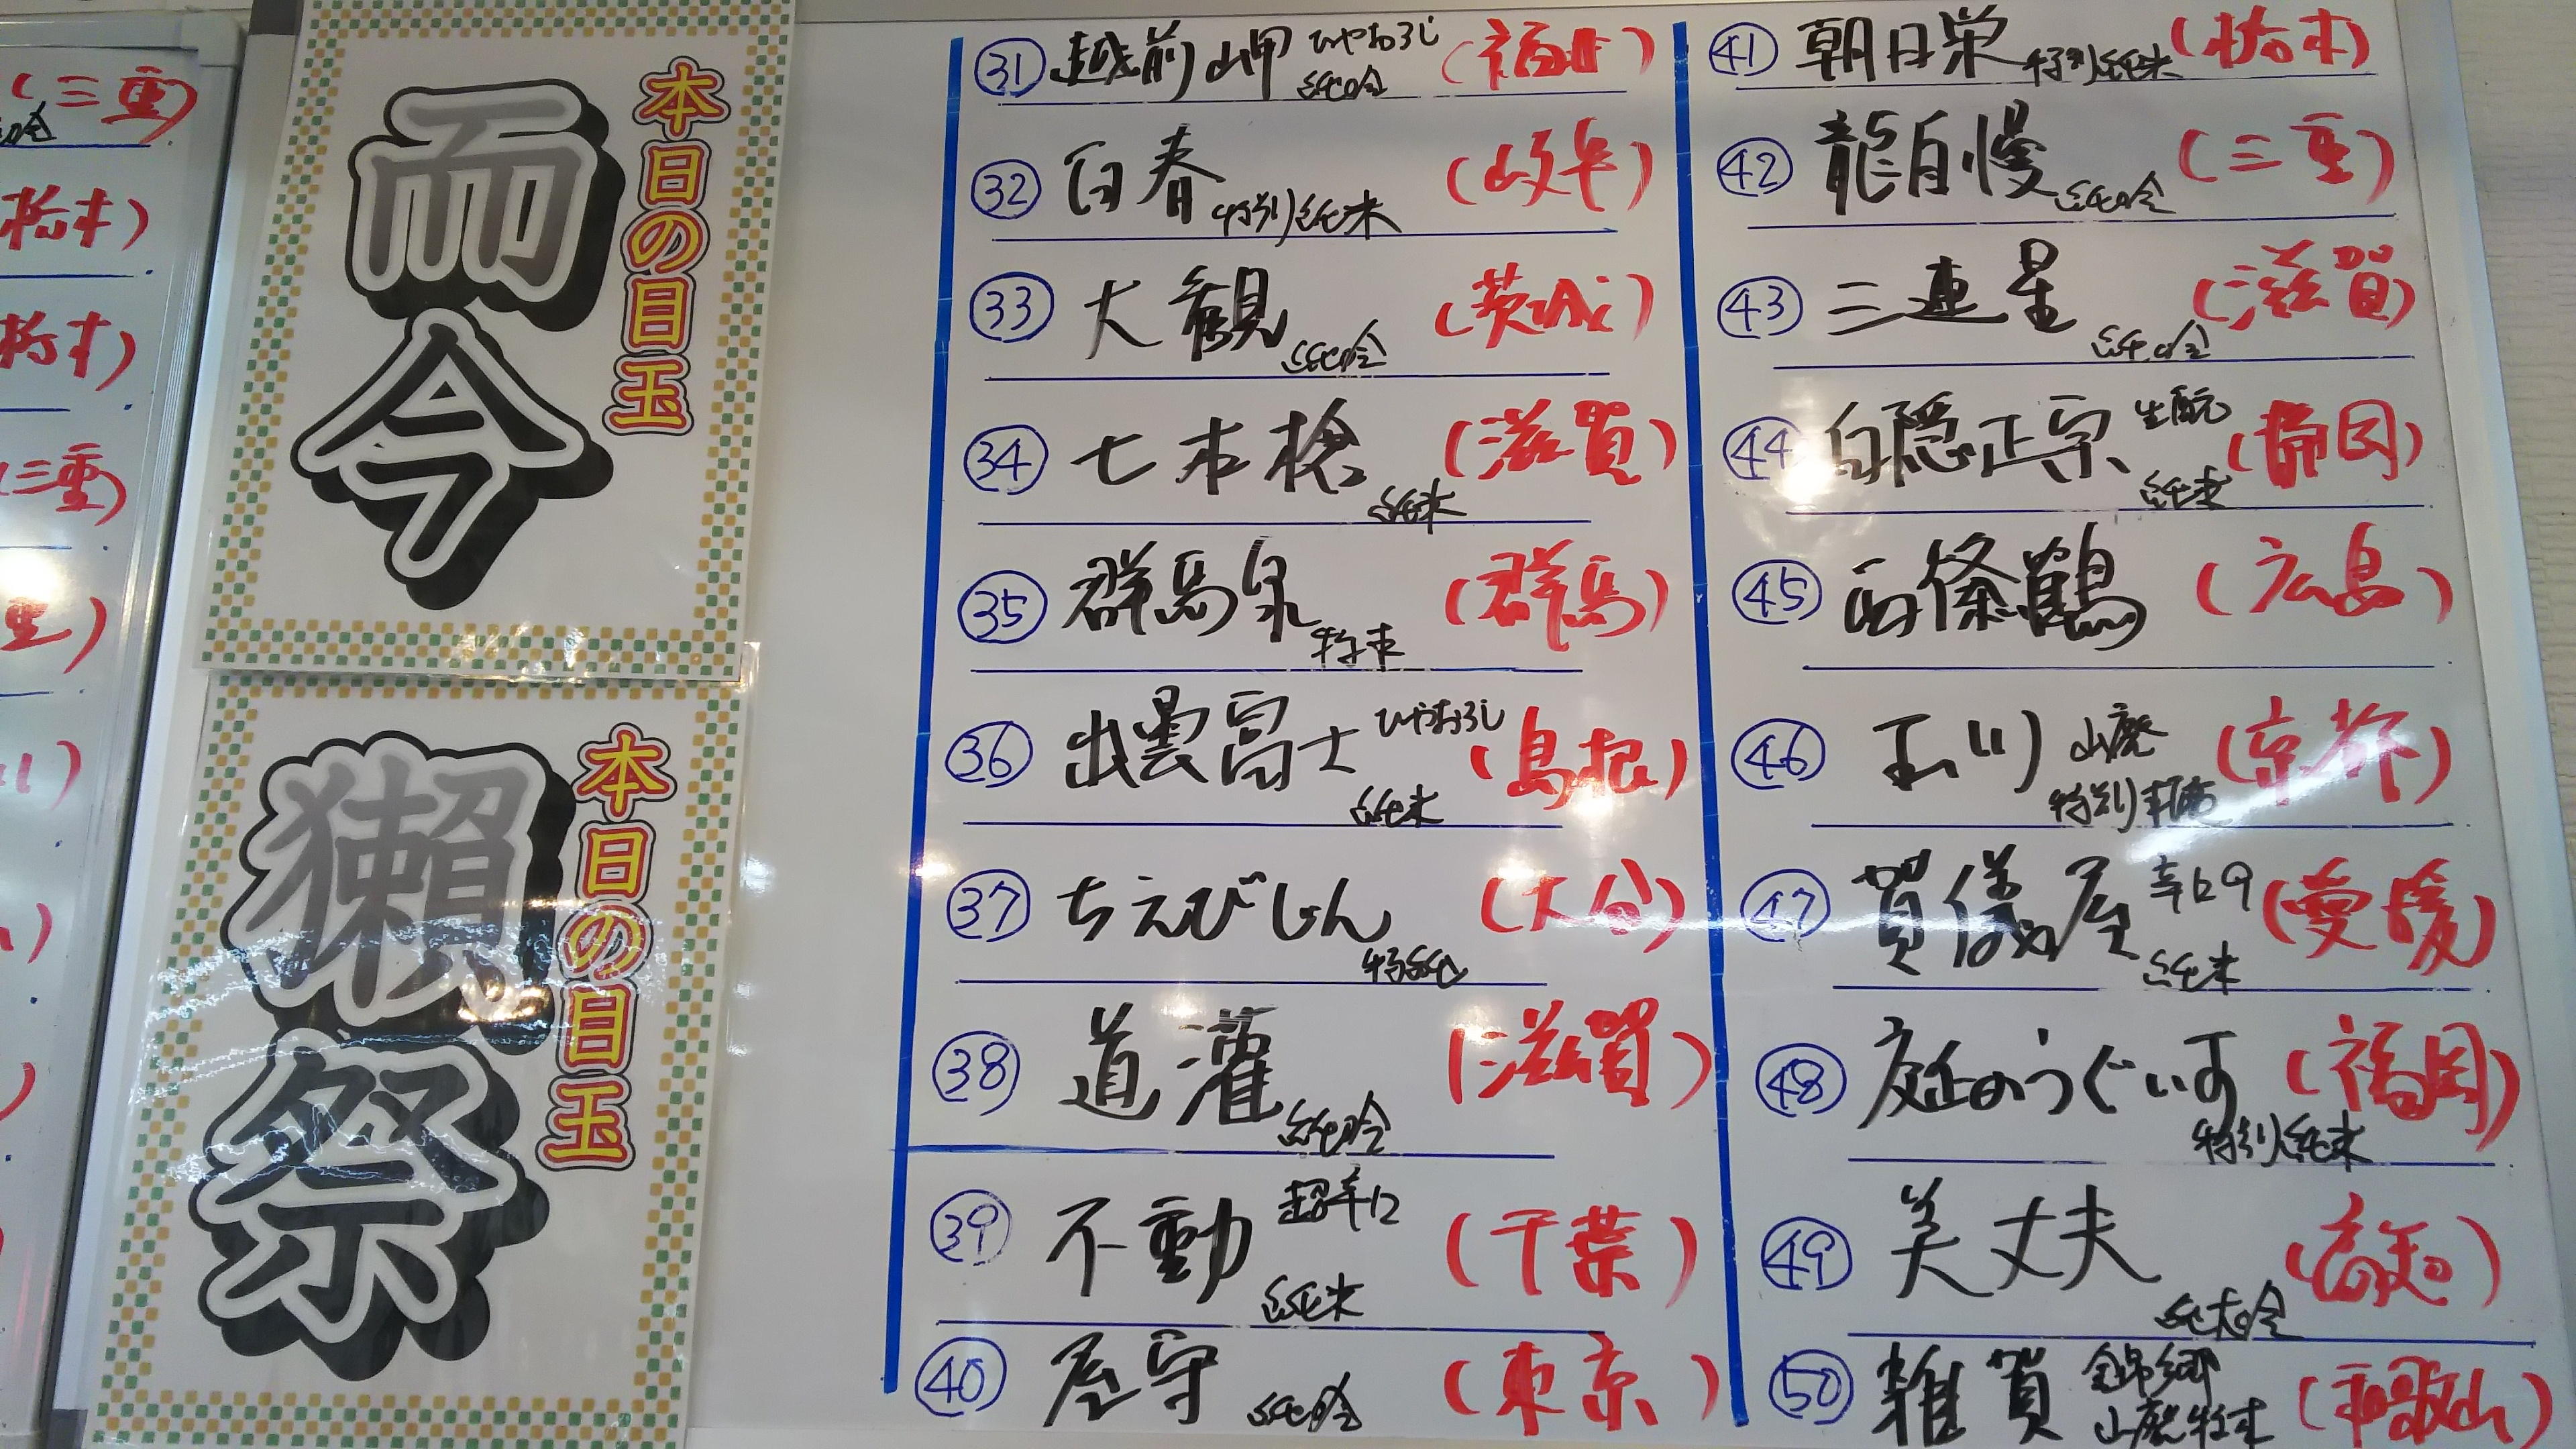 (三重)
(栃木)
(栃木)
(三重)
本日の目玉
而今
本日の目玉
獺祭
㉛ 越前岬 ひやおろし 純吟 (福井)
㉜ 百春 特別純米 (岐阜)
㉝ 大観 純吟 (茨城)
㉞ 七本槍 純米 (滋賀)
㉟ 群馬泉 特本 (群馬)
㊱ 出雲富士 ひやおろし 純米 (島根)
㊲ ちえびじん 特純 (大分)
㊳ 道灌 純吟 (滋賀)
㊴ 不動 超辛口 純米 (千葉)
㊵ 屋守 純吟 (東京)
㊶ 朝日栄 特別純米 (栃木)
㊷ 龍自慢 純吟 (三重)
㊸ 三連星 純吟 (滋賀)
㊹ 白隠正宗 生酛 純米 (静岡)
㊺ 西條鶴 (広島)
㊻ 玉川 山廃 特別本醸 (京都)
㊼ 賀儀屋 辛口9 純米 (愛媛)
㊽ 庭のうぐいす 特別純米 (福岡)
㊾ 美丈夫 純大吟 (高知)
㊿ 雑賀 錦郷 山廃特本 (和歌山)